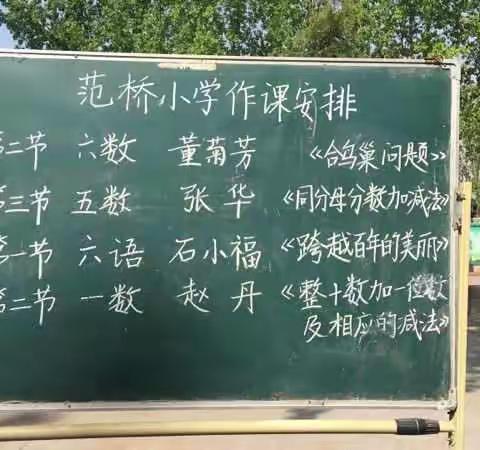 范桥小学作课安排
第二节 六数 董菊芳 《鸽巢问题》
第三节 五数 张华 《同分母分数加减法》
第一节 六语 石小福 《跨越百年的美丽》
第二节 一数 赵丹 《整十数加一位数
及相应的减法》